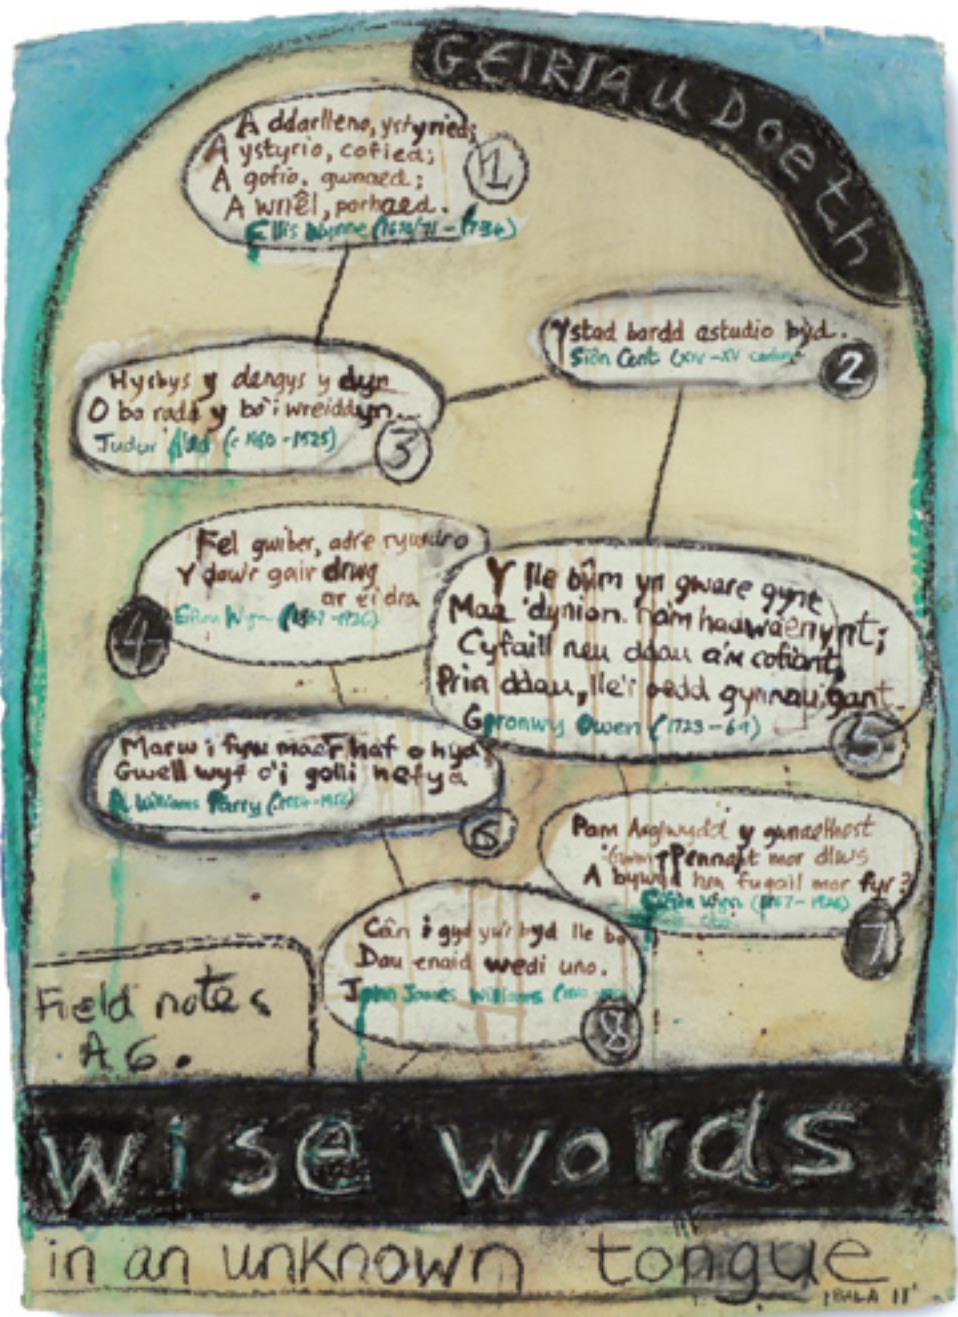 GEIRIAU DOETH
A ddarlleno, ystyried;
A ystyrio, cofied;
A gofio, gwnaed;
A wnêl, parhaed.
Ellis Wynne (1670/71 - 1734)
1
Ystad bardd astudio byd.
Siôn Cent (XIV - XV
2
Hysbys y dengys y dyn
O ba radd y bo'i wreiddyn.
Tudur Aled (c 1450 - 1525)
3
Fel gwiber, adre ryw dro
Y daw'r gair drwg
ar ei dra
Eifion Wyn (1867 - 1926)
4
Y lle bûm yn gware gynt
Mae 'dynion. n'am hadwaenynt;
Cyfaill neu ddau a'm cofiant,
Prin ddau, lle'r oedd gynnau gant
Goronwy Owen (1723 - 69)
5
Marw i fyw mae'r haf o hyd
Gwell wyf o'i golli hefyd
R Williams Parry
6
Pam Arglwydd y gwnaethost
Pennant mor dlws
A bywyd hen fugail mor fyr?
Eifion Wyn (1867 - 1926)
7
Cân i gyd yw'r byd lle bo
Dau enaid wedi uno.
John James Williams
8
Field notes
A 6.
Wise words
in an unknown tongue
BALA 11'